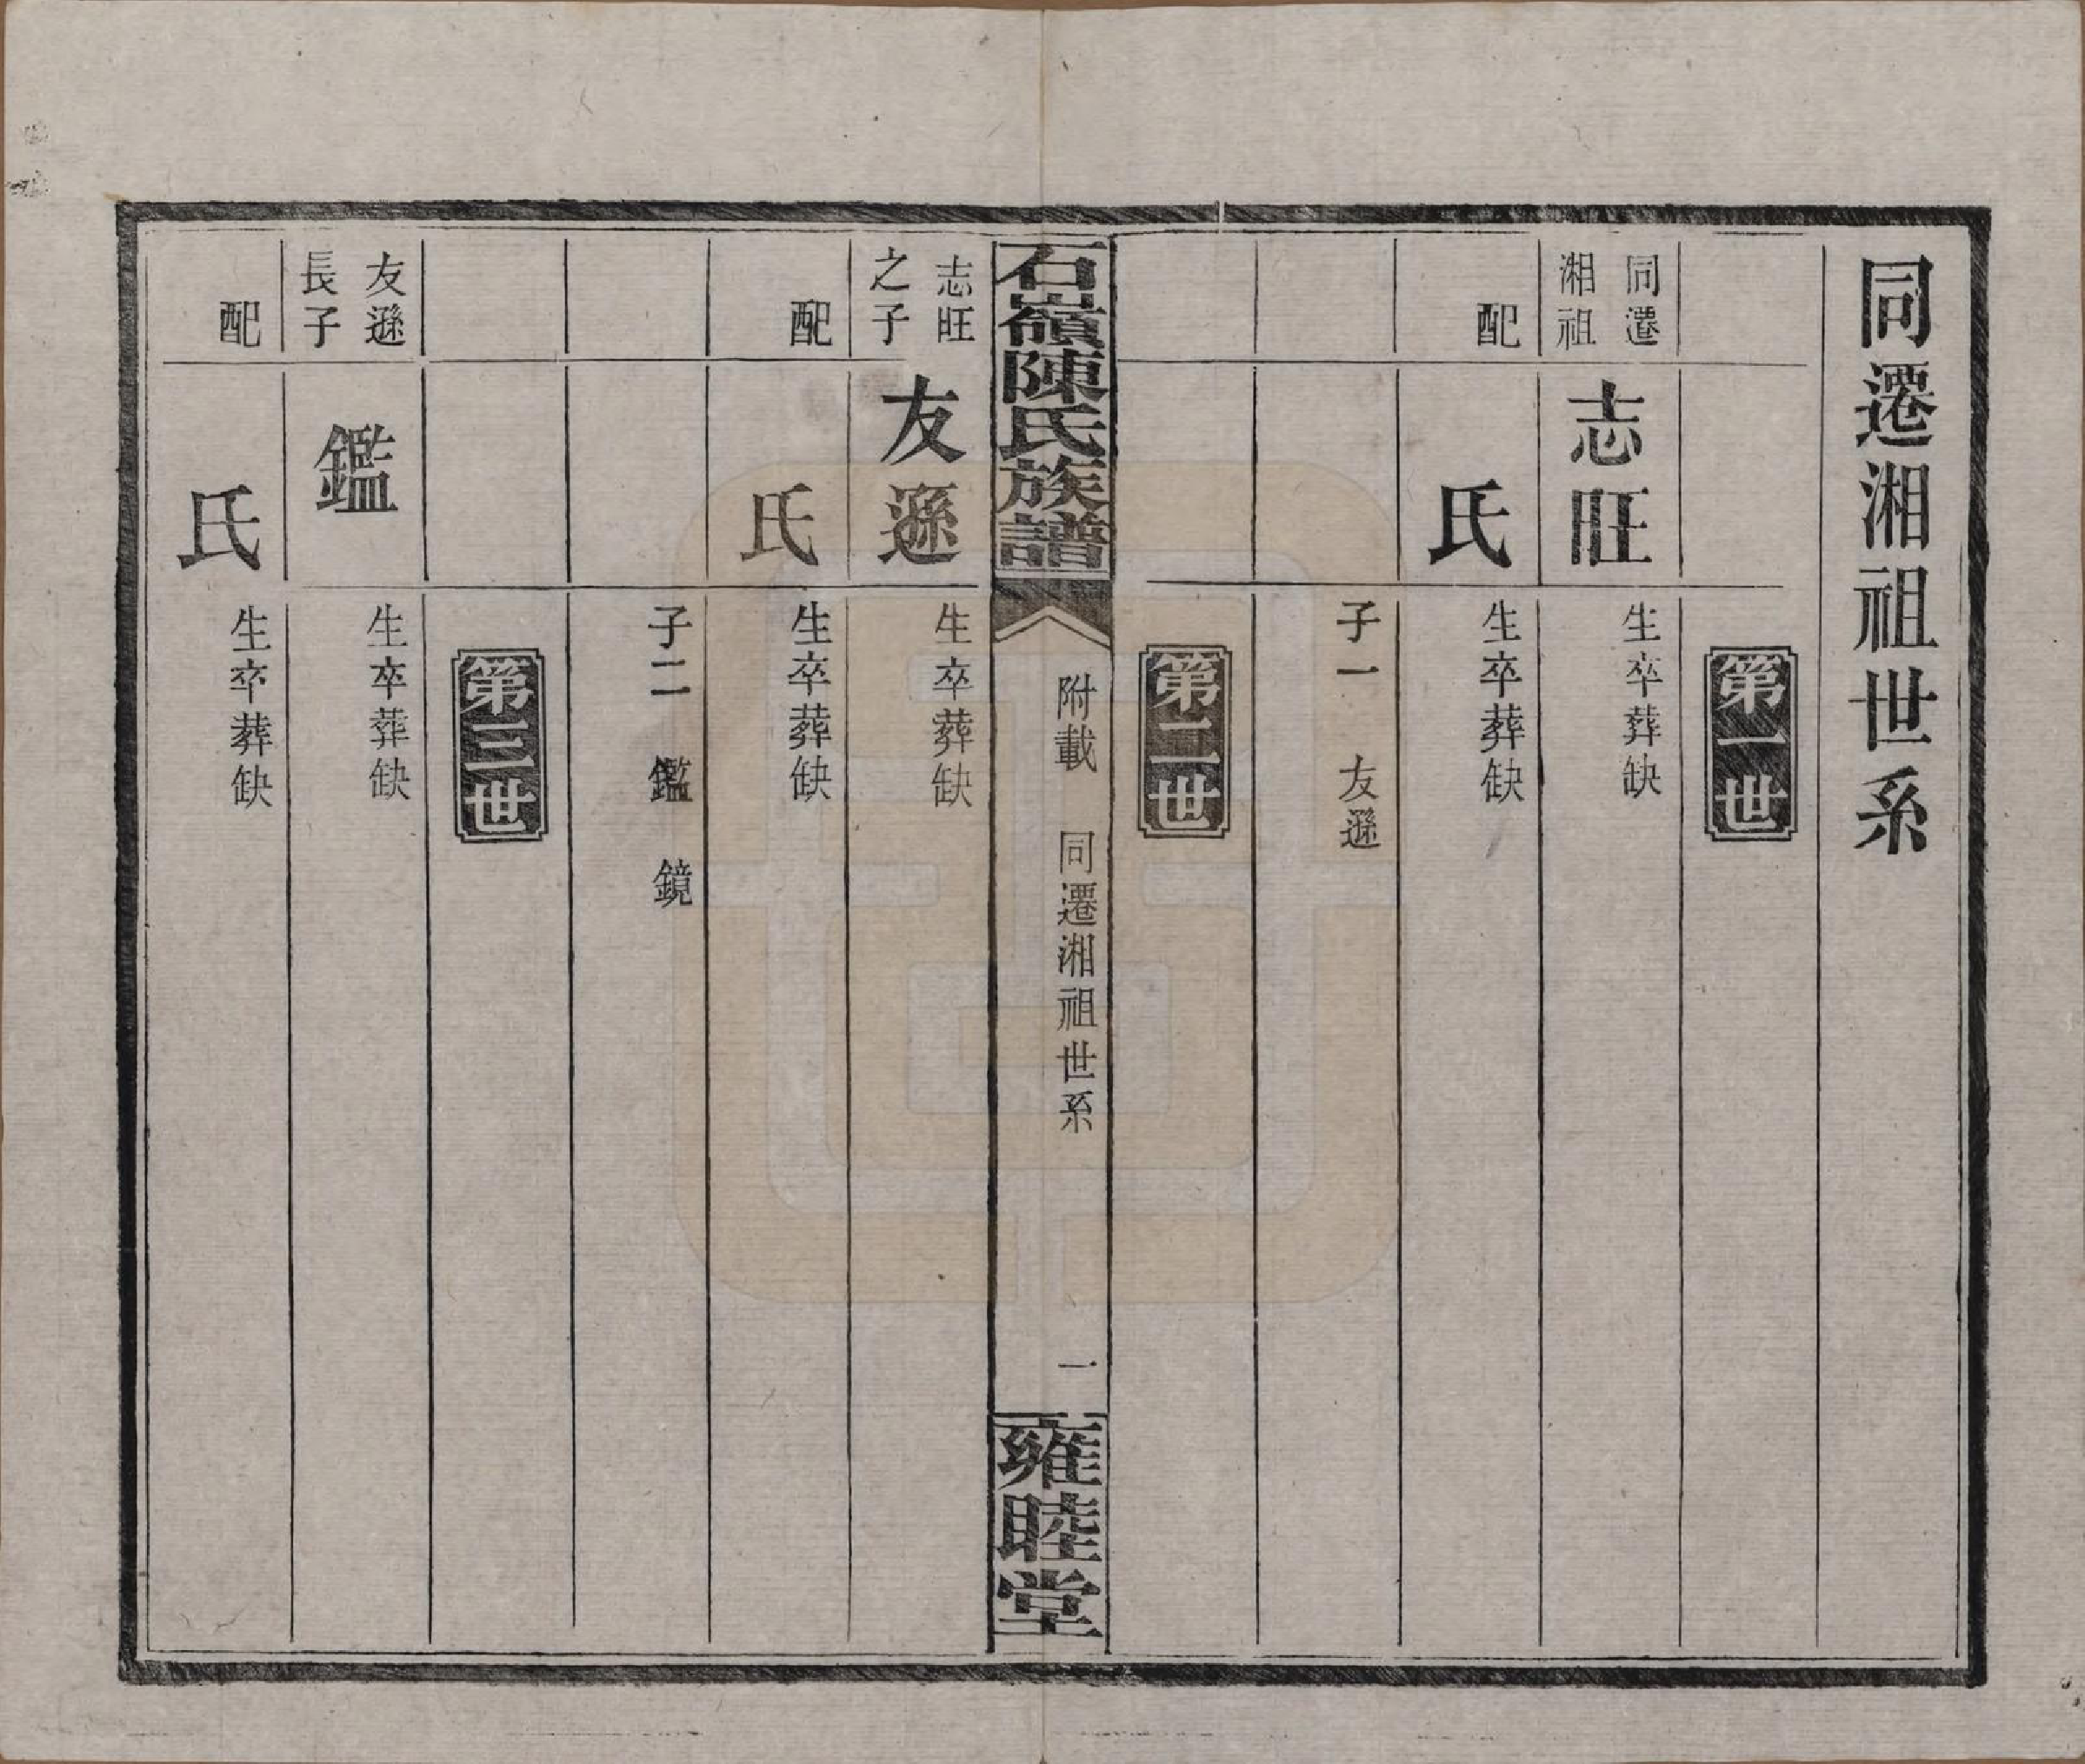 同遷湘祖世系
第一世
同遷湘祖 志旺 生卒葬缺
配 氏 生卒葬缺
子一 友遜
第二世
石嶺陳氏族譜 附載 同遷湘祖世系 一 雍睦堂
志旺之子 友遜 生卒葬缺
配 氏 生卒葬缺
子二 鑑 鏡
第三世
友遜長子 鑑 生卒葬缺
配 氏 生卒葬缺